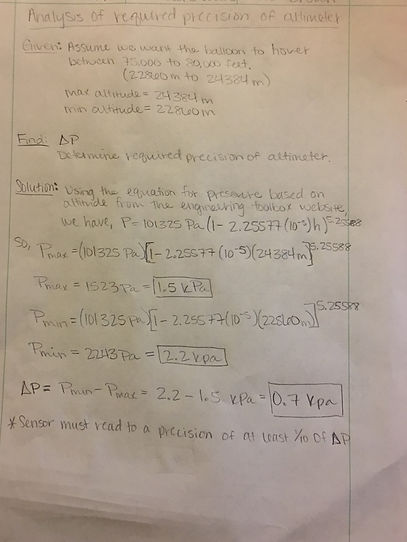 Analysis of required precision of altimeter
Given: Assume we want the balloon to hover
between 75,000 to 80,000 feet.
(22860 m to 24384 m)
max altitude = 24384 m
min altitude = 22860 m
Find: ΔP
Determine required precision of altimeter.
Solution: Using the equation for pressure based on
altitude from the engineering toolbox website,
we have, P = 101325 Pa (1 - 2.25577(10⁻⁵)h)^5.25588
So, Pmax = (101325 Pa)[1 - 2.25577(10⁻⁵)(24384 m]^5.25588
Pmax = 1523 Pa = 1.5 kPa
Pmin = (101325 Pa)[1 - 2.25577(10⁻⁵)(22860 m)]^5.25588
Pmin = 2243 Pa = 2.2 kpa
ΔP = Pmin - Pmax = 2.2 - 1.5 kPa = 0.7 kpa
*Sensor must read to a precision of at least 1/10 of ΔP